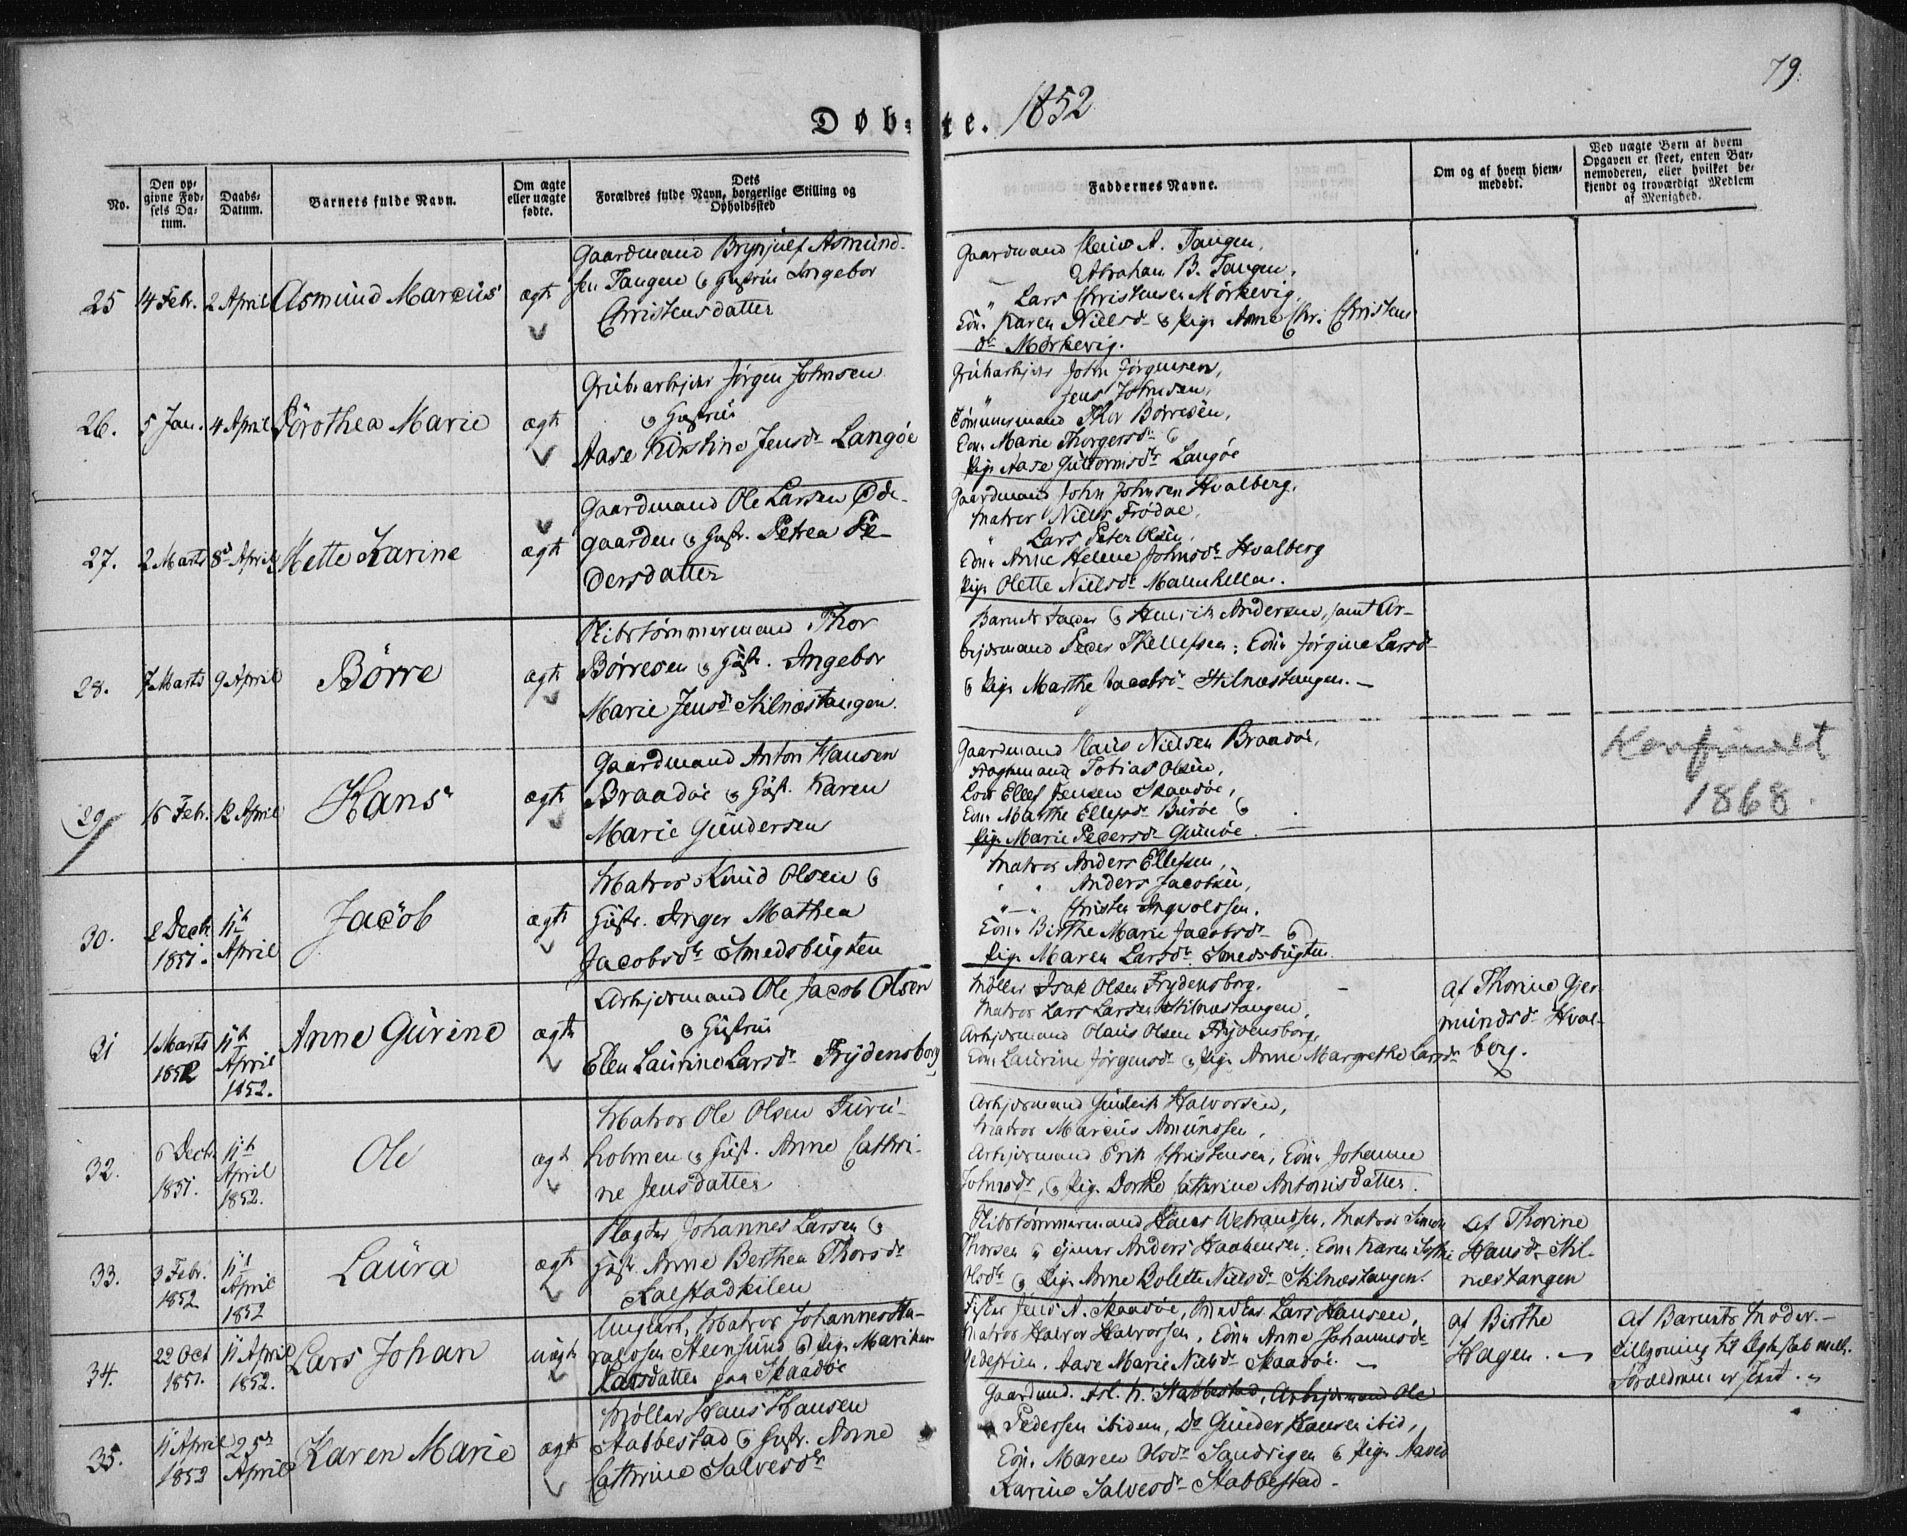 79.
Døb-te. 1852
No.
Den op-
givne Fød-
sels Da-
tum.
Daabs-
Datum.
Barnets fulde Navn.
Om ægte
eller uægte
fødte.
Dets
Forældres fulde Navn, borgerlige Stilling og
Opholdssted
Faddernes Navne.
Om og af hvem hjem-
medøbt.
Ved uægte Børn af hvem
Opgaven er skeet, enten Bar-
nemoderen, eller hvilket be-
kjendt og troværdigt Medlem
af Menighed.
25 14 Febr. 2 April Asmund Marcus ægte
Gaardmand Brynjulf Asmund-
sen Tangen & Hustrue Ingebor
Christensdatter
Gaardmand A. Tangen,
Abraham B. Tangen,
" Lars Christensen Mørkevig,
Karen Nielsd. & Pige Anne Chr. Christens
dr. Mørkevig.
26. 5 Jan. 4 April Dorothea Marie ægte
Grubearbeider Jørgen Johnsen
& Hustrue
Aase Kirstine Jensdr. Langøe
Grubearbeider John Jørgensen,
" Jens Johnsen,
Tømmermand Thor Børresen,
Marie Thorgersdr. &
Pige Aase Guttormsdr. Langøe
27. 2 Marts 8d April Mette Karine ægte
Gaardmand Ole Larsen Øde-
gaarden & Hustr. Petrea Pe-
dersdatter
Gaardmand John Johnsen Hvalberg,
Matros Niels Frødøe,
" Lars Peter Olsen,
Anne Helene Johnsdr. Hvalberg
Pige Olette Nielsdr.
28. 7 Marts 9 April Børre ægte
Skibstømmermand Thor
Børresen & Hustr. Ingebor
Marie Jensdr. Stilnæstangen.
Barnets Fader & Henrik Andersen, samt Ar-
beidsmand Peder Thellefsen; Jørgine Larsdr.
& Pige Marthe Jacobsdr. Stilnæstangen. —
29 16 Febr. 12 April Hans ægte
Gaardmand Anton Hansen
Braadøe & Hustr. Karen
Marie Gundersen
Gaardmand Nielsen Braadøe,
Tobias Olsen,
Lods Ellef Jensen Skaadøe,
Marthe Ellefsdr. &
Pige Marie Pedersdr. Gumøe. —
Konfirmert
1868.
30. 2 Decb. 11te Jacob ægte
1851. April
Matros Knud Olsen &
Hustr. Inger Mathea
Jacobsdr. Smedsbugten
Matros Anders Ellefsen,
" " Anders Jacobsen,
" — " Christen Ingvoldsen.
Birthe Marie Jacobsdr. &
Pige Maren Larsdr. Smedsbugten.
31 1 Marts 11te Anne Gurine ægte
1852 April
1852.
Arbeidsmand Ole Jacob Olsen
& Hustrue
Ellen Laurine Larsdr. Frydensborg
Møller Isak Olsen Frydensborg.
Matros Lars Larsen Stilnæstangen,
Arbeidsmand Olaus Olsen Frydensborg,
Laurine Jørgensdr. & Pige Anne Margrethe Larsdr.
af Thorine Gjer
mundsdr. Hval-
berg.
32. 6 Decb. 11te Ole ægte
1851. April
1852.
Matros Ole Olsen Furu-
holmen & Hust. Anne Cathri-
ne Jensdatter
Arbeidsmand Halvorsen,
Matros Marcus Amundsen,
Arbeidsmand Erik Christensen, Johanne
Johnsdr., & Pige Dorthe Cathrine Antonisdatter.
33. 3 Febr. 11te Laura ægte
1852 April
1852
Slagter Johannes Larsen &
Hustr. Anne Berthea Thorsdr.
Kalstadkilen
Skibstømmermand Hans Wetrandsen, Matros Simon
Thorsen & Anders Haakensen; Karen
Olsdr. & Pige Anne Bolette Nielsdr. Stilnæstangen.
af Thorine
Hansdr. Stil-
næstangen
34. 22 Oct 11 April Lars Johan uægte
1851. 1852.
Ungkarl, Matros Johannes Ha-
raldsen Steensund & Pige Mariken
Larsdatter paa Skaadøe
Fisker Jens A. Skaadøe, Lars Hansen,
Matros Halvor Halvorsen, Anne Johannesdr.
Aase Marie Nielsdr. Skaadøe. —
af Birthe
Hagen. —
Af Barnets Moder. —
Lillysning til Ægteskab mell.
Forældrene er skeet.
35. 11 April 25d Karen Marie ægte
1852 April
Møller Hans Hansen
Stabbestad & Hustr. Anne
Cathrine Salvesdr.
Gaardmd. Asl. H. Stabbestad, Arbeidsmand Ole
Pedersen ibidem, Do Gunder Hansen ibid,
Maren Olsdr. Sandvigen & Pige
Karine Salvesdr. Stabbestad —